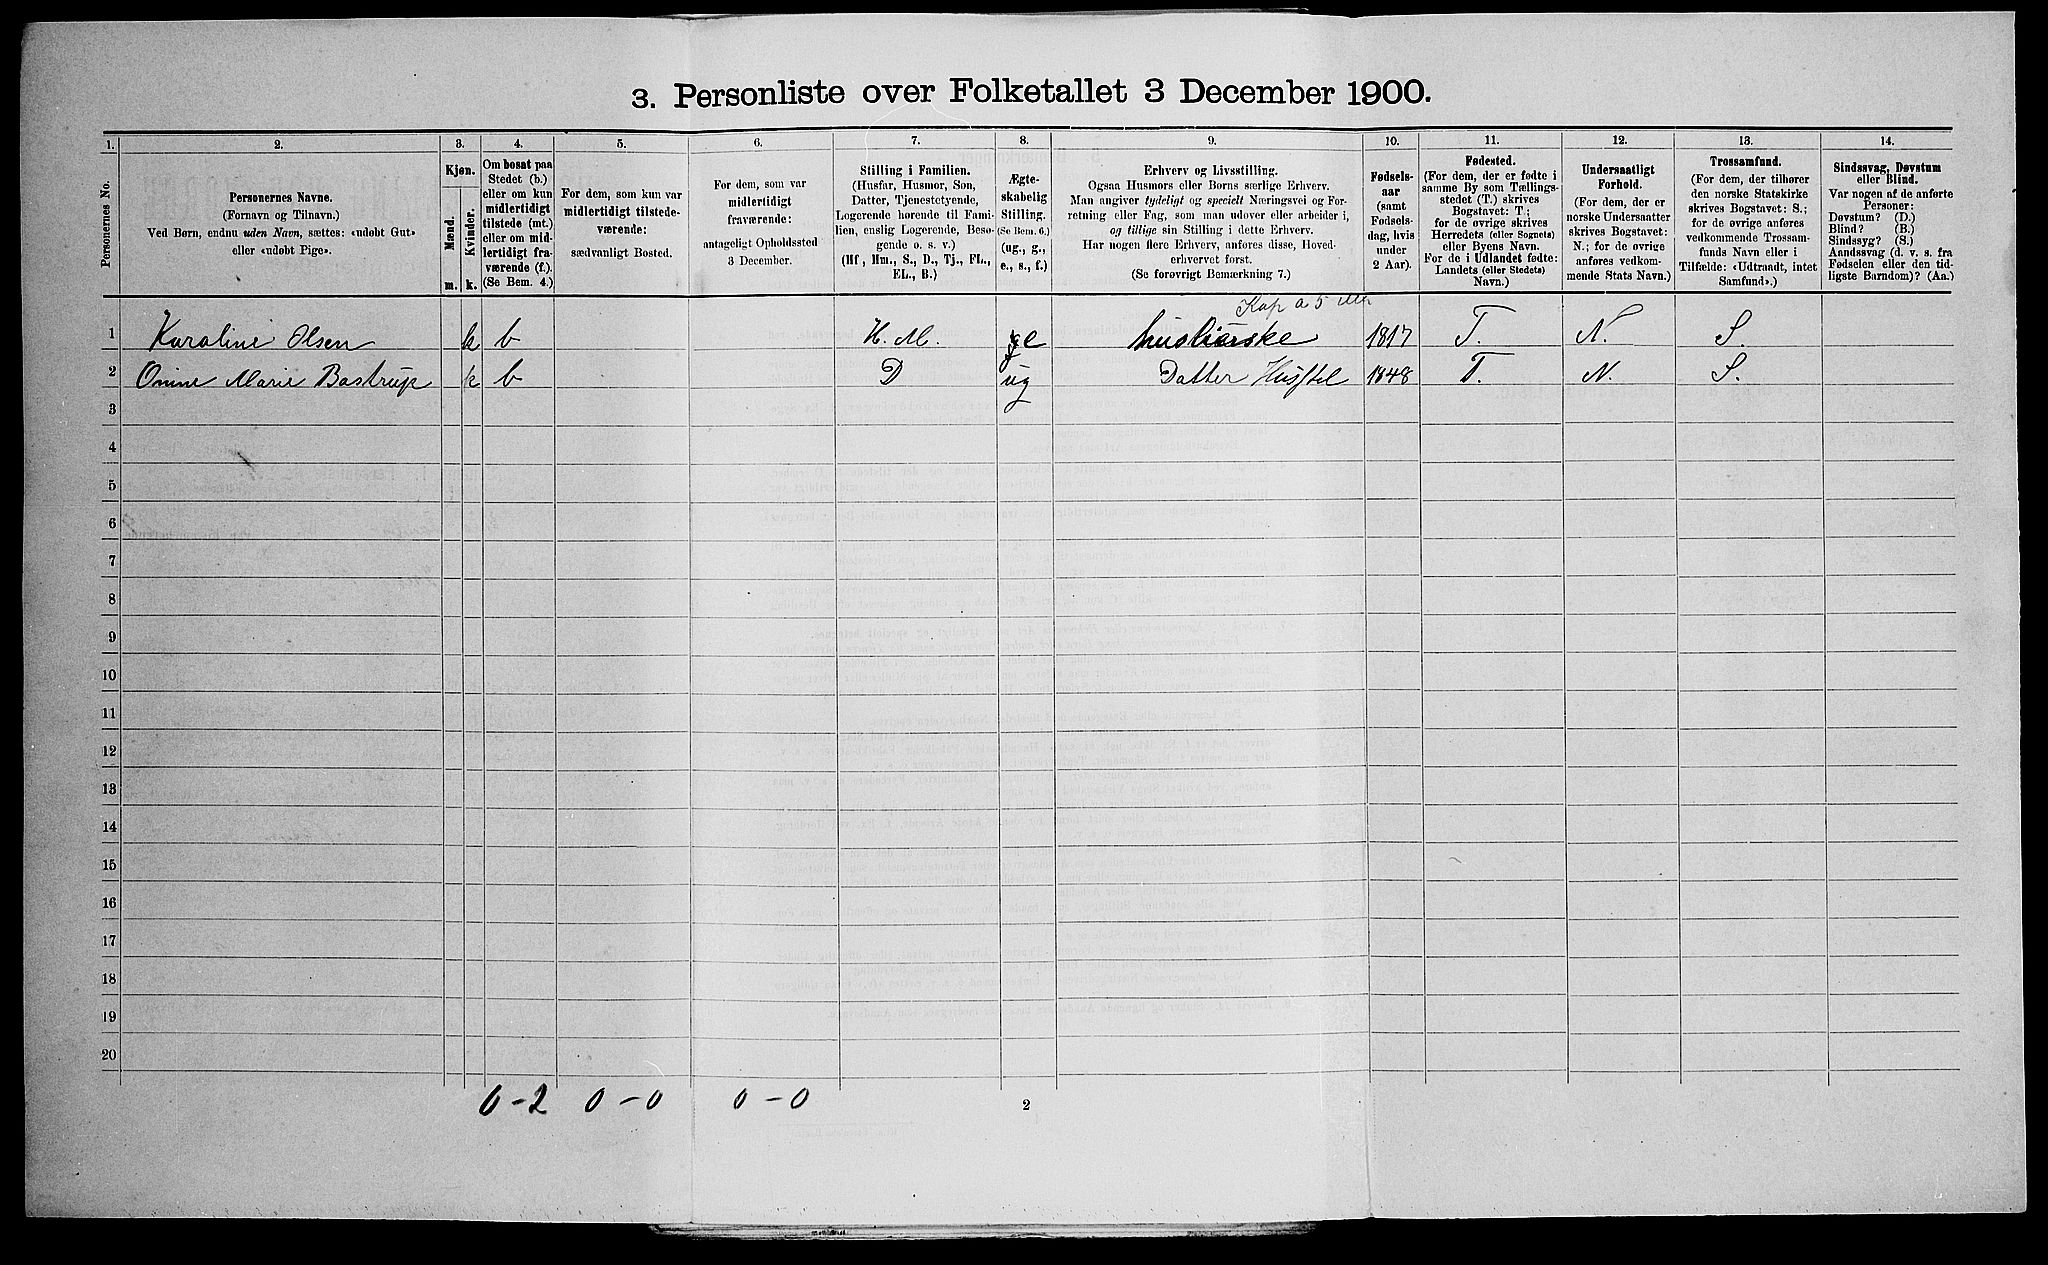 3. Personliste over Folketallet 3 December 1900.
1. 2. 3. 4. 5. 6. 7. 8. 9. 10. 11. 12. 13. 14.
Personernes No.
Personernes Navne.
(Fornavn og Tilnavn.)
Ved Børn, endnu uden Navn, sættes: «udøbt Gut»
eller «udøbt Pige».
Kjøn.
Mænd.
Kvinder.
m. k.
Om bosat paa
Stedet (b.)
eller om kun
midlertidigt
tilstede (mt.)
eller om mid-
lertidigt fra-
værende (f.).
(Se Bem. 4.)
For dem, som kun var
midlertidigt tilstede-
værende:
sædvanligt Bosted.
For dem, som var
midlertidigt
fraværende:
antageligt Opholdssted
3 December.
Stilling i Familien.
(Husfar, Husmor, Søn,
Datter, Tjenestetyende,
Logerende hørende til Fami-
lien, enslig Logerende, Besø-
gende o. s. v.)
(Hf, Hm., S., D., Tj., FL.,
EL., B.)
Ægte-
skabelig
Stilling.
(Se Bem. 6.)
(ug., g.,
e., s., f.)
Erhverv og Livsstilling.
Ogsaa Husmors eller Børns særlige Erhverv.
Man angiver tydeligt og specielt Næringsvei og For-
retning eller Fag, som man udover eller arbeider i,
og tillige sin Stilling i dette Erhverv.
Har nogen flere Erhverv, anføres disse, Hoved-
erhvervet først.
(Se forøvrigt Bemærkning 7.)
Fødsels-
aar
(samt
Fødsels-
dag, hvis
under
2 Aar).
Fødested.
(For dem, der er fødte i
samme By som Tællings-
stedet (T.) skrives
Bogstavet: T.;
for de øvrige skrives
Herredets (eller Sognets)
eller Byens Navn.
For de i Udlandet fødte:
Landets (eller Stedets)
Navn.)
Undersaatligt
Forhold.
(For dem, der er
norske Undersaatter
skrives Bogstavet:
N.; for de øvrige
anføres vedkom-
mende Stats Navn.)
Trossamfund.
(For dem, der tilhører
den norske Statskirke
skrives Bogstavet: S.;
for de øvrige anføres
vedkommende Trossam-
funds Navn eller i
Tilfælde: «Udtraadt, intet
Samfund».)
Sindssvag, Døvstum
eller Blind.
Var nogen af de anførte
Personer:
Døvstum? (D.)
Blind? (B.)
Sindssyg? (S.)
Aandssvag (d. v. s. fra
Fødselen eller den tid-
ligste Barndom)? (Aa.)
Kap a 5
1 Karoline Olsen k b H. M. e 1817 T. N. S.
2 Onine Marie Bastrup k b D ug Datter Husstel 1848 T. N. S.
3
4
5
6
7
8
9
10
11
12
13
14
15
16
17
18
19
20
0-2 0-0 0-0
2